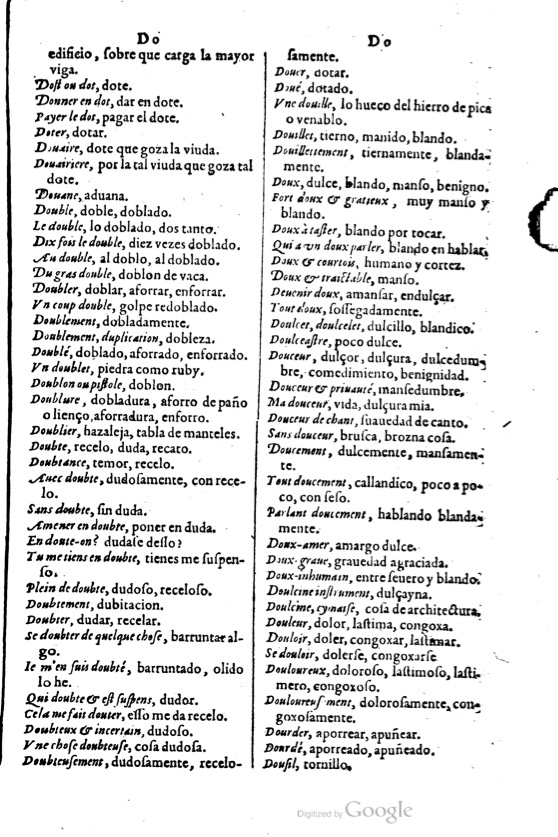 Do
edificio, ſobre que carga la mayor
viga.
Doſt ou dot, dote.
Donner en dot, dar en dote.
Payer le dot, pagar el dote.
Doter, dotar.
Douaire, dote que goza la viuda.
Douairiere, por la tal viuda que goza tal
dote.
Douane, aduana.
Double, doble, doblado.
Le double, lo doblado, dos tanto.
Dix fois le double, diez vezes doblado.
Au double, al doblo, al doblado.
Du gras double, doblon de vaca.
Doubler, doblar, aforrar, enforrar.
Vn coup double, golpe redoblado.
Doublement, dobladamente.
Doublement, duplication, dobleza.
Doublé, doblado, aforrado, enforrado.
Vn doublet, piedra como ruby.
Doublon ou piſtole, doblon.
Doublure, dobladura, aforro de paño
o lienço, aforradura, enforro.
Doublier, hazaleja, tabla de manteles.
Doubte, recelo, duda, recato.
Doubtance, temor, recelo.
Auec doubte, dudoſamente, con rece-
lo.
Sans doubte, ſin duda.
Amener en doubte, poner en duda.
En doute-on? dudaſe deſlo?
Tu me tiens en doubte, tienes me ſuſpen-
ſo.
Plein de doubte, dudoſo, receloſo.
Doubtement, dubitacion.
Doubter, dudar, recelar.
Se doubter de quelque choſe, barruntar al-
go.
Ie m'en ſuis doubté, barruntado, olido
lo he.
Qui doubte & eſt ſuſpens, dudor.
Cela me fait douter, eſſo me da recelo.
Doubteux & incertain, dudoſo.
Vne choſe doubteuſe, coſa dudoſa.
Doubteuſement, dudoſamente, recelo-
Do
ſamente.
Douer, dotar.
Doué, dotado.
Vne douille, lo hueco del hierro de pica
o venablo.
Douillet, tierno, manido, blando.
Douillettement, tiernamente, blanda-
mente.
Doux, dulce, blando, manſo, benigno.
Fort doux & gratieux, muy manſo y
blando.
Doux à taſter, blando por tocar.
Qui a vn doux parler, blando en hablar.
Doux & courtois, humano y cortez.
Doux & traictable, manſo.
Deuenir doux, amanſar, endulçar.
Tout doux, ſoſſegadamente.
Doulcet, doucelet, dulcillo, blandico.
Doulceaſtre, poco dulce.
Douceur, dulçor, dulçura, dulcedum-
bre, comedimiento, benignidad.
Douceur & priuauté, manſedumbre.
Ma douceur, vida, dulçura mia.
Douceur de chant, ſuauedad de canto.
Sans douceur, bruſca, brozna coſa.
Doucement, dulcemente, manſamen-
te.
Tout doucement, callandico, poco a po-
co, con ſeſo.
Parlant doucement, hablando blanda-
mente.
Doux-amer, amargo dulce.
Doux-graue, grauedad agraciada.
Doux-inhumain, entre ſeuero y blando.
Doulcine inſtrument, dulçayna.
Doulcine, cymaiſe, coſa de architectura.
Douleur, dolor, laſtima, congoxa.
Douloir, doler, congoxar, laſtimar.
Se douloir, dolerſe, congoxarſe
Douloureux, doloroſo, laſtimoſo, laſti-
mero, congoxoſo.
Douloureuſ ment, doloroſamente, con-
goxoſamente.
Dourder, aporrear, apuñear.
Dourdé, aporreado, apuñeado.
Douſil, tornillo.
Digitized by Google